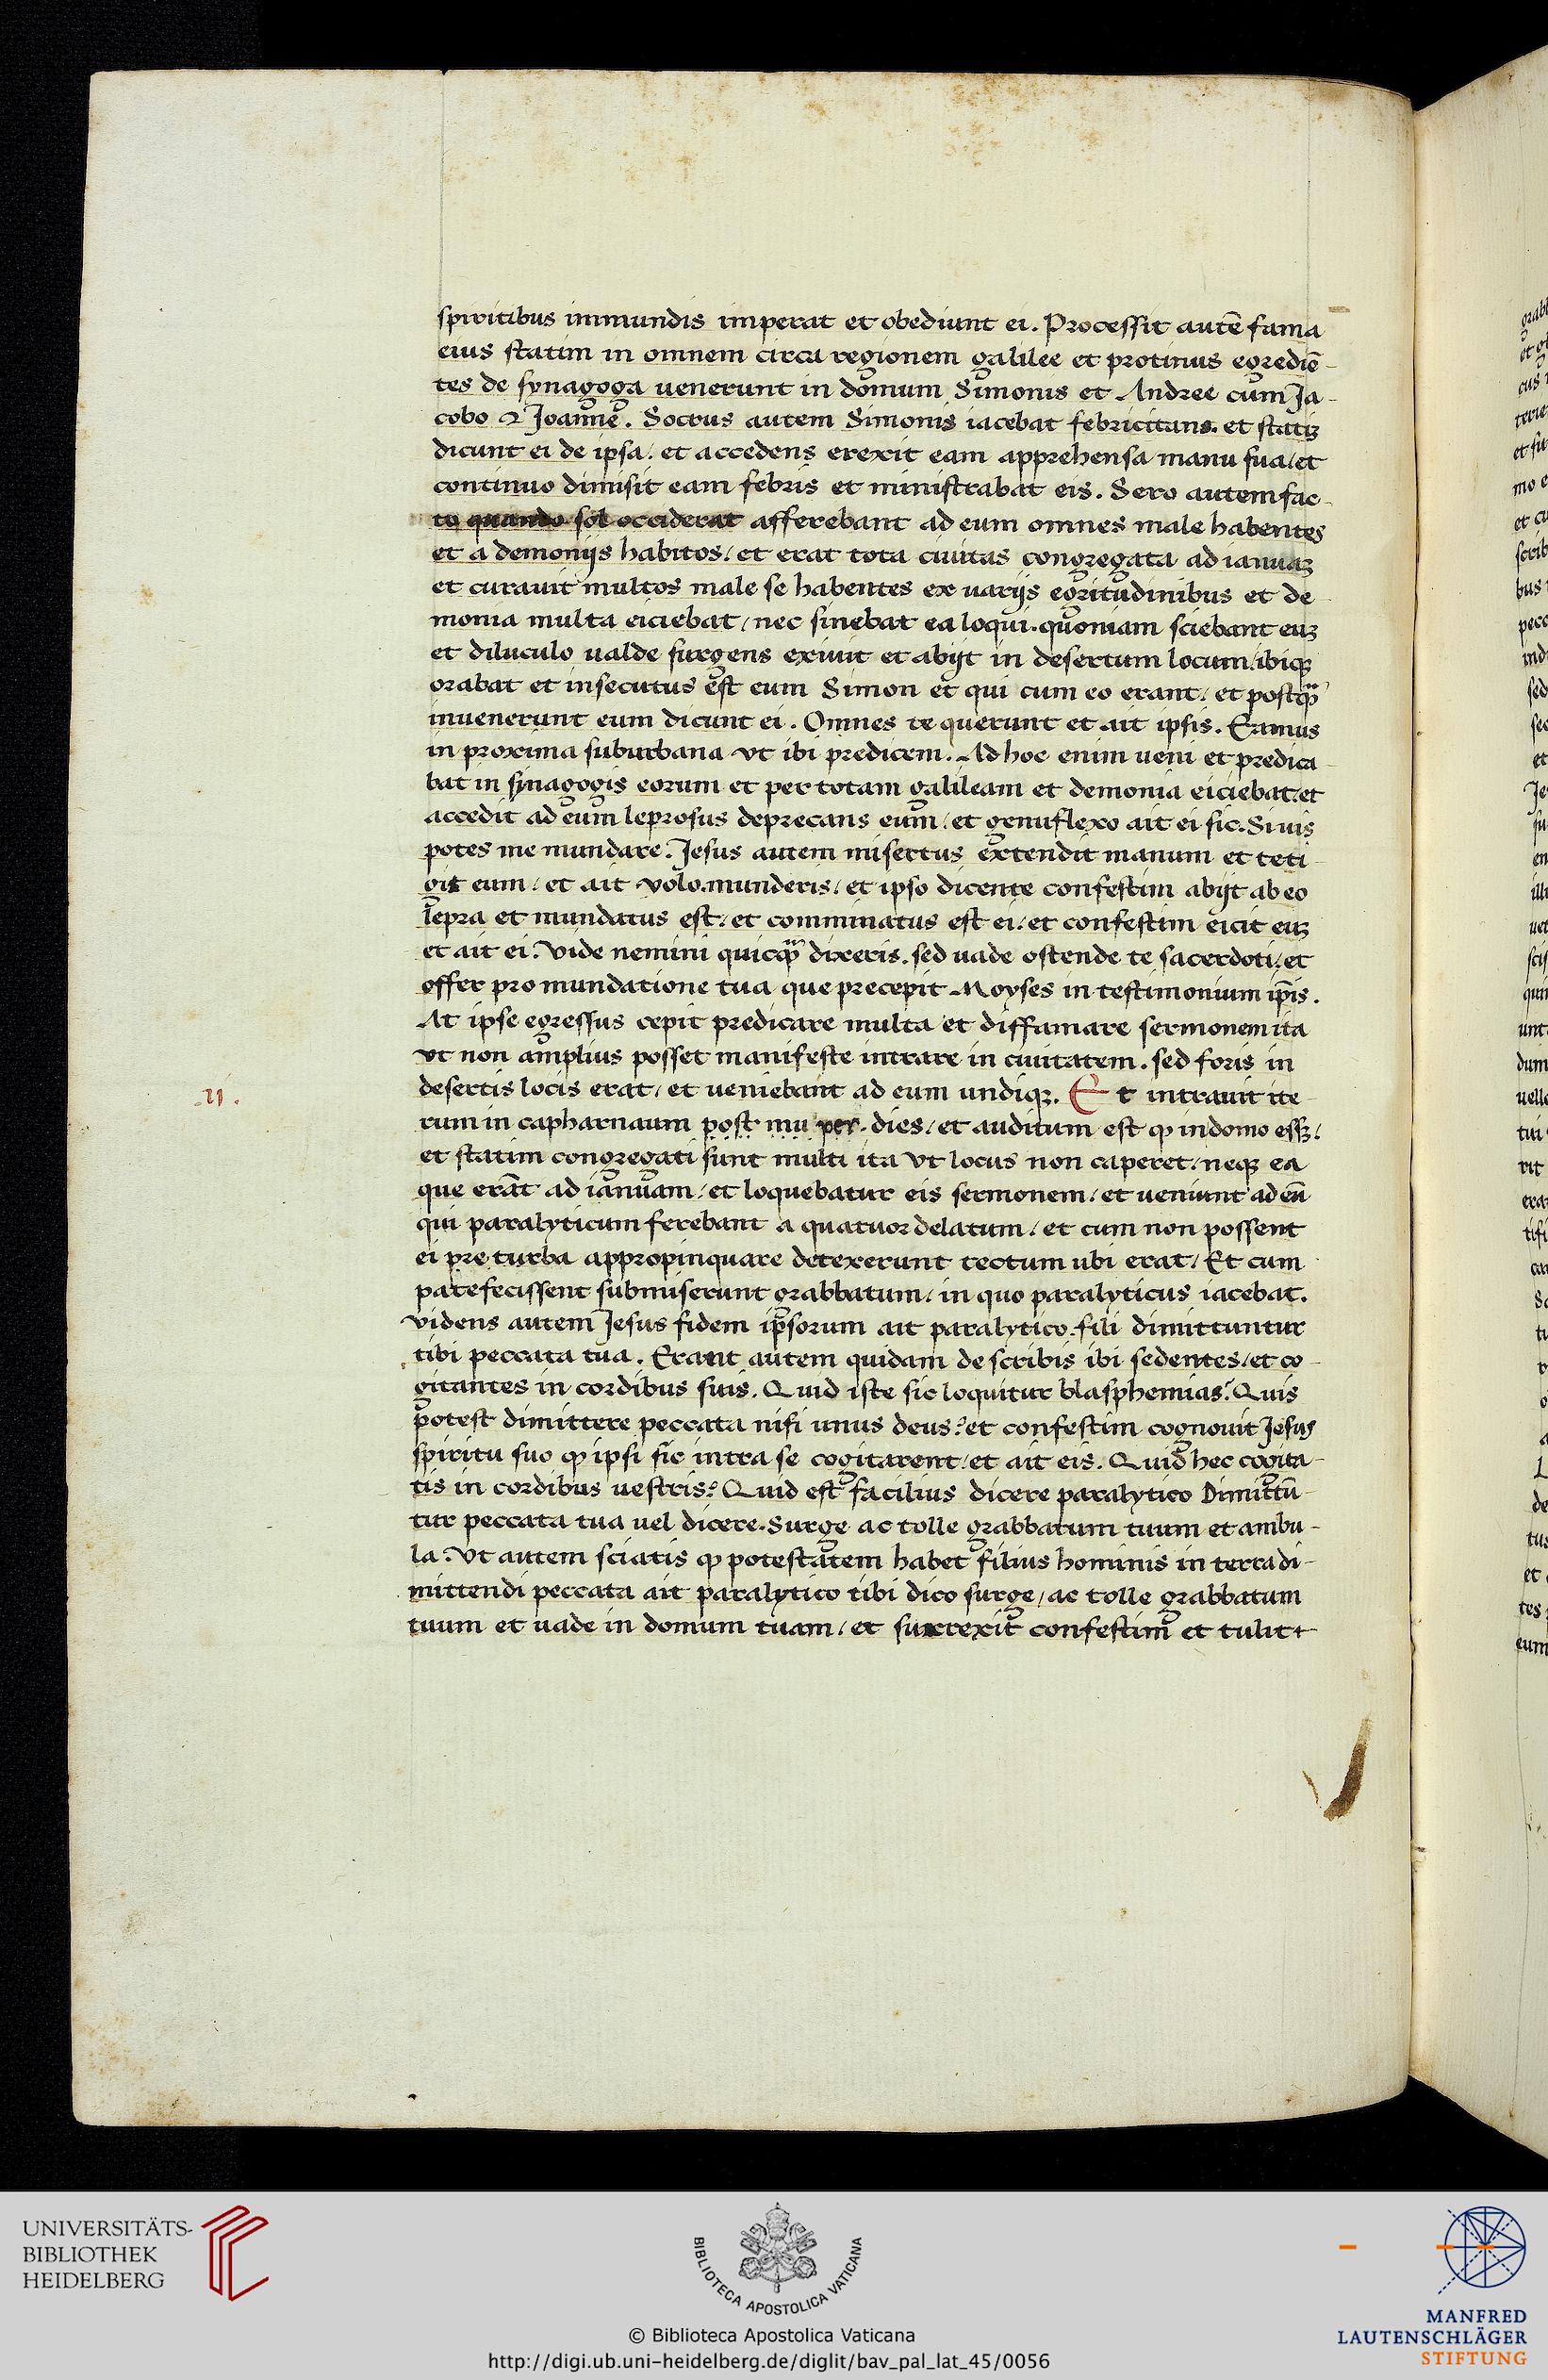 spiritibus immundis imperat et obediunt ei. Processit autē fama
eius statim in omnem circa regionem galilee et protinus egrediē-
tes de synagoga uenerunt in domum Simonis et Andree cum Ja-
cobo & Joanne. Socrus autem Simonis iacebat febricitans. et statiꝫ
dicunt ei de ipsa / et accedens erexit eam apprehensa manu sua / et
continuo dimisit eam febris et ministrabat eis. Sero autem fac-
to quando sol occiderat afferebant ad eum omnes male habentes
et a demonijs habitos / et erat tota ciuitas congregata ad ianuaꝫ
et curauit multos male se habentes ex uarijs egritudinibus et de-
monia multa eiciebat / nec sinebat ea loqui. quoniam sciebant euꝫ
et diluculo ualde surgens exiuit et abijt in desertum locum / ibiqꝫ
orabat et insecutus est eum Simon et qui cum eo erant / et postqᷓ
inuenerunt eum dicunt ei. Omnes te querunt et ait ipsis. Eamus
in proxima suburbana ut ibi predicem. Ad hoc enim ueni et predica-
bat in synagogis eorum et per totam galileam et demonia eiciebat. et
accedit ad eum leprosus deprecans eum / et genuflexo ait ei sic. Si uis
potes me mundare. Jesus autem misertus extendit manum et teti-
git eum / et ait uolo. munderis / et ipso dicente confestim abijt ab eo
lepra et mundatus est / et comminatus est ei / et confestim eicit euꝫ
et ait ei. Vide nemini quicqᷓ dixeris. sed uade ostende te sacerdoti / et
offer pro mundatione tua que precepit Moyses in testimonium ip̄is.
At ipse egressus cepit predicare multa et diffamare sermonem ita
ut non amplius posset manifeste intrare in ciuitatem. sed foris in
desertis locis erat / et ueniebant ad eum undiqꝫ. Et intrauit ite-
.II.
rum in capharnaum post per. dies / et auditum est ꝙ in domo essꝫ /
et statim congregati sunt multi ita ut locus non caperet / neqꝫ ea
que erāt ad ianuam / et loquebatur eis sermonem / et ueniunt ad eū
qui paralyticum ferebant a quatuor delatum / et cum non possent
ei pre turba appropinquare detexerunt tectum ubi erat / Et cum
patefecissent submiserunt grabbatum / in quo paralyticus iacebat.
videns autem Jesus fidem ipsorum ait paralytico. fili dimittuntur
tibi peccata tua. Erant autem quidam de scribis ibi sedentes / et co-
gitantes in cordibus suis. Quid iste sic loquitur blasphemias? Quis
potest dimittere peccata nisi unus deus? et confestim cognouit Jesus
spiritu suo ꝙ ipsi sic intra se cogitarent / et ait eis. Quid hec cogita-
tis in cordibus uestris? Quid est facilius dicere paralytico Dimittū-
tur peccata tua uel dicere. Surge ac tolle grabbatum tuum et ambu-
la. Vt autem sciatis ꝙ potestatem habet filius hominis in terra di-
mittendi peccata ait paralytico tibi dico surge / ac tolle grabbatum
tuum et uade in domum tuam / et surrexit confestim et tulit
UNIVERSITÄTS-
BIBLIOTHEK
HEIDELBERG
BIBLIOTECA APOSTOLICA VATICANA
© Biblioteca Apostolica Vaticana
http://digi.ub.uni-heidelberg.de/diglit/bav_pal_lat_45/0056
MANFRED
LAUTENSCHLÄGER
STIFTUNG